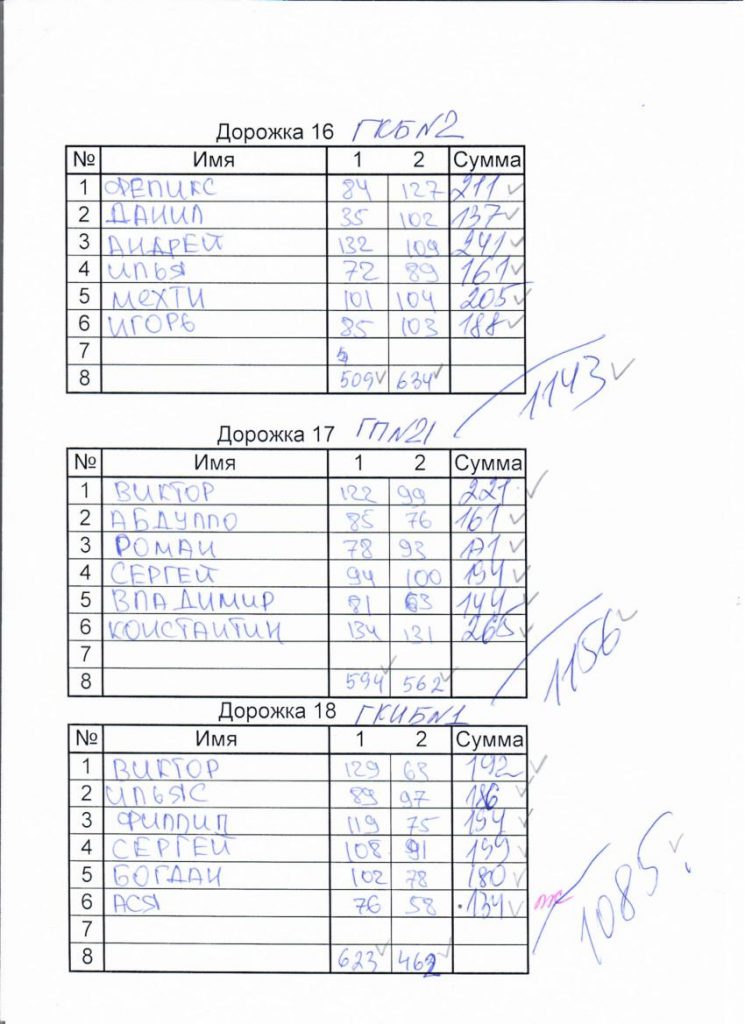 Дорожка 16 ГКБ№2
№ Имя 1 2 Сумма
1 ФЕЛИКС 84 127 211
2 ДАНИЛ 35 102 137
3 АНДРЕЙ 132 109 241
4 ИЛЬЯ 72 89 161
5 МЕХТИ 101 104 205
6 ИГОРЬ 85 103 188
7
8 509 634
1143
Дорожка 17 ГП№21
№ Имя 1 2 Сумма
1 ВИКТОР 122 99 221
2 АБДУЛЛО 85 76 161
3 РОМАН 78 93 171
4 СЕРГЕЙ 94 100 194
5 ВЛАДИМИР 81 63 144
6 КОНСТАНТИН 134 131 265
7
8 594 562
1156
Дорожка 18 ГКИБ№1
№ Имя 1 2 Сумма
1 ВИКТОР 129 63 192
2 ИЛЬЯС 89 97 186
3 ФИЛЛИП 119 75 194
4 СЕРГЕЙ 108 91 199
5 БОГДАН 102 78 180
6 АСЯ 76 58 134
7
8 623 462
1085